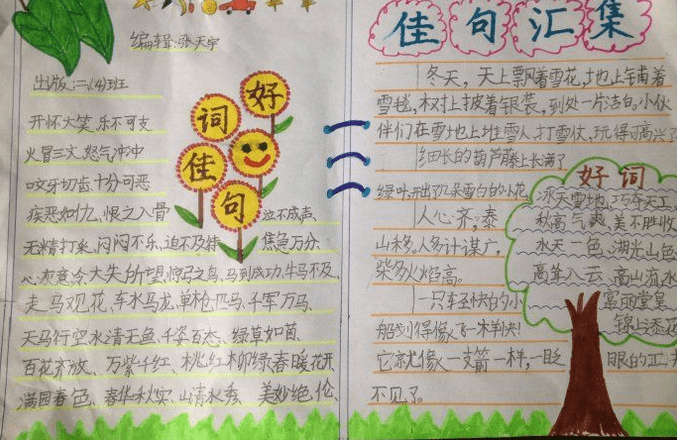 编辑:张天宇
出版:二、(4)班
好
词
佳
句
开怀大笑、乐不可支
火冒三丈、怒气冲冲
咬牙切齿、十分可恶
疾恶如仇、恨之入骨 泣不成声、
无精打采、闷闷不乐、迫不及待 焦急万分、
心灰意冷、大失所望、惊弓之鸟、马到成功、牛马不及、
走马观花、车水马龙、单枪匹马、千军万马、
天马行空、水清无鱼、千姿百态、绿草如茵、
百花齐放、万紫千红、桃红柳绿、春暖花开、
满园春色、春华秋实、山清水秀、美妙绝伦、
佳句汇集
冬天,天上飘着雪花,地上铺着
雪毯,树上披着银装,到处一片洁白,小伙
伴们在雪地上堆雪人,打雪仗,玩得可高兴了
细长的葫芦藤上长满了
绿叶,开出了几朵雪白的小花。
人心齐,泰
山移。人多计谋广,
柴多火焰高。
一只轻快的小
船划得像飞一样
它就像一支箭一样,一眨 眼的工夫
不见了。
好词
冰天雪地、巧夺天工
秋高气爽、美不胜收
水天一色、湖光山色
高耸入云、高山流水
富丽堂皇
锦上添花